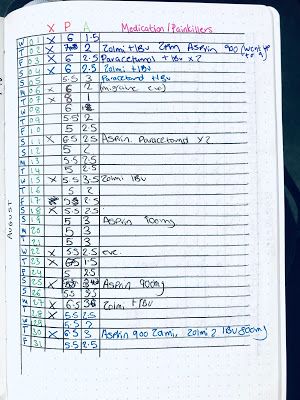 X P A Medication/Painkillers
W 01 X 6 1.5
T 02 X 2 Zolmi + IBU Aspirin 900
F 03 X 6 2.5 Paracetamol + IBU x 2
S 04 X 6 2.5 Zolmi + IBU
S 05 5.5 3 Paracetamol + IBU
M 06 X 6 2 (migraine eve)
T 07 X 1
W 08 6
T 09 5.5 2
F 10 5 2.5
S 11 X 6.5 2.5 Aspirin. Paracetamol x 2
S 12 5 2
M 13 5.5 2.5
T 14 5 2.5
W 15 X 5.5 3.5 Zolmi IBU
T 16 5 2
F 17 X 2.5
S 18 X 5.5 2.5
S 19 5 3 Aspirin 900mg
M 20 5 3
T 21 5 3
W 22 X 5.5 2.5 eve.
T 23 X 1.5
F 24 5 2.5
S 25 X Aspirin 900mg
S 26 5.5 3.5
M 27 X 6.5 Zolmi + IBU
T 28 X 5.5 2.5
W 29 5.5 2
T 30 X 6.5 3 Aspirin 900 Zolmi, Zolmi 2 IBU 800mg
F 31 5.5 2.5
AUGUST